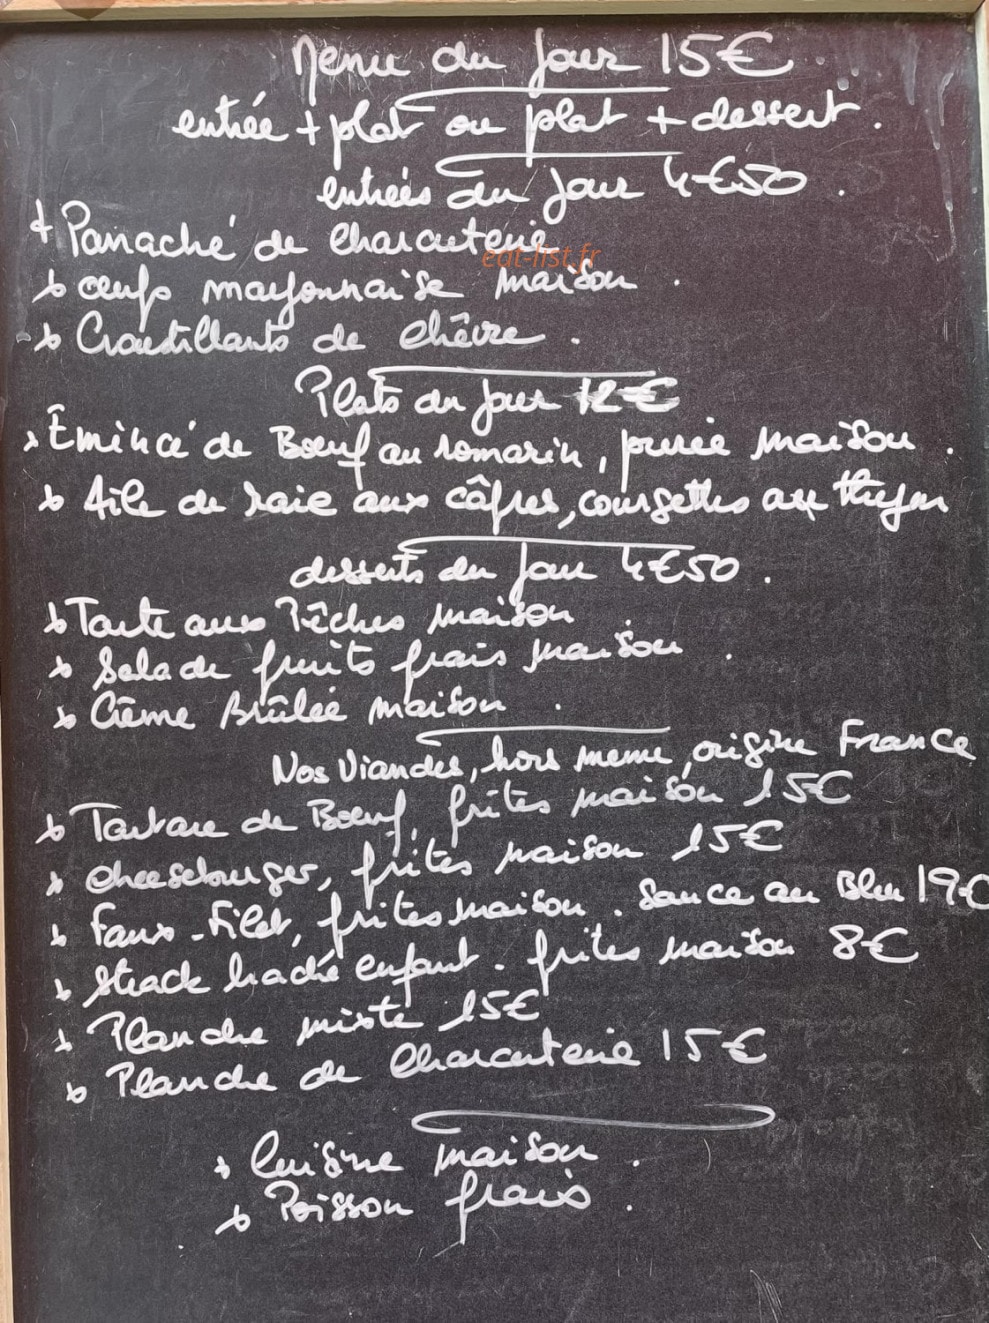 Menu du jour 15€
entrée + plat ou plat + dessert.
entrées du jour 4€50.
Panaché de charcuterie
eat-list.fr
oeufs mayonnaise maison.
Croustillants de chèvre.
Plats du jour 12€
Émincé de Boeuf au romarin, purée maison.
Aile de raie aux câpres, courgettes au thym
desserts du jour 4€50.
Tarte aux Pêches maison.
Salade fruits frais maison.
Crème Brûlée maison.
Nos Viandes, hors menu, origine France
Tartare de Boeuf, frites maison 15€
cheeseburger, frites maison 15€
Faux-Filet, frites maison. Sauce au Bleu 19€
Steack haché enfant. frites maison 8€
Planche mixte 15€
Planche de Charcuterie 15€
Cuisine maison.
Poisson frais.